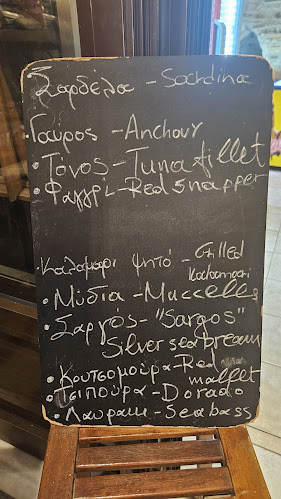 Σαρδέλα - Sardina
Γαυρος - Anchovy
• Τόνος - Tuna fillet
• Φαγγρί - Red snapper
• Καλαμαρι ψητό - Grilled
Kalamari
• Μύδια - Muccells
• Σαργός - "Sargos"
Silver seabream
• Κουτσομούρα - Red
mallet
• Τσιπούρα - Dorado
• Λαυρακι - Seabass